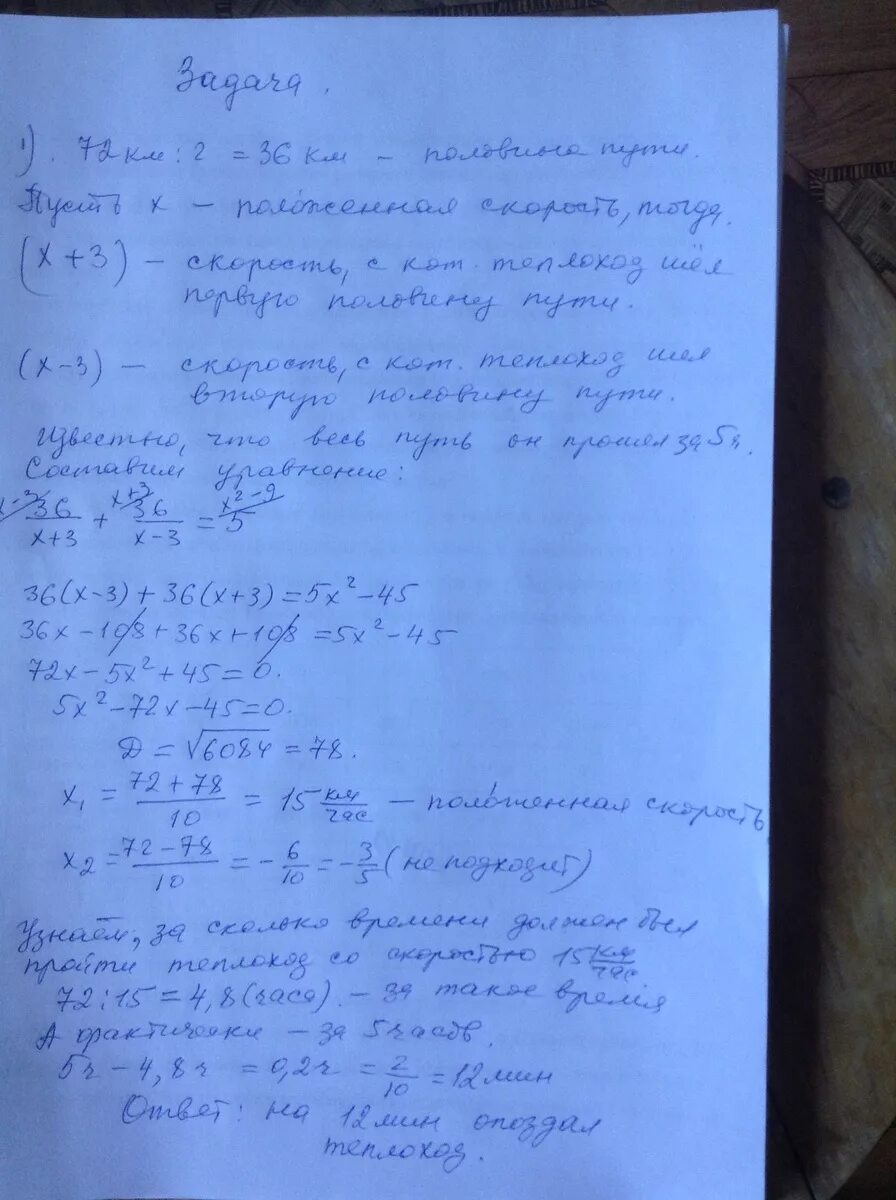 Задача.
1). 72 км : 2 = 36 км – половина пути.
Пусть x – положенная скорость, тогда
(x+3) – скорость, с кот. теплоход шёл
первую половину пути.
(x-3) – скорость, с кот. теплоход шел
вторую половину пути.
Известно, что весь путь он прошел за 5ч.
Составим уравнение:
x-3 36/x+3 + x+3 36/x-3 = x²-9 5
36(x-3) + 36(x+3) = 5x² - 45
36x - 108 + 36x + 108 = 5x² - 45
72x - 5x² + 45 = 0.
5x² - 72x - 45 = 0.
Д = √6084 = 78.
x₁ = 72+78/10 = 15 км/час – положенная скорость
x₂ = 72-78/10 = -6/10 = -3/5 (не подходит)
Узнаем, за сколько времени должен был
пройти теплоход со скоростью 15 км/час
72 : 15 = 4,8 (часа). – за такое время
А фактически – за 5 часов.
5ч - 4,8ч = 0,2ч = 2/10 = 12 мин
Ответ: на 12 мин опоздал
теплоход.